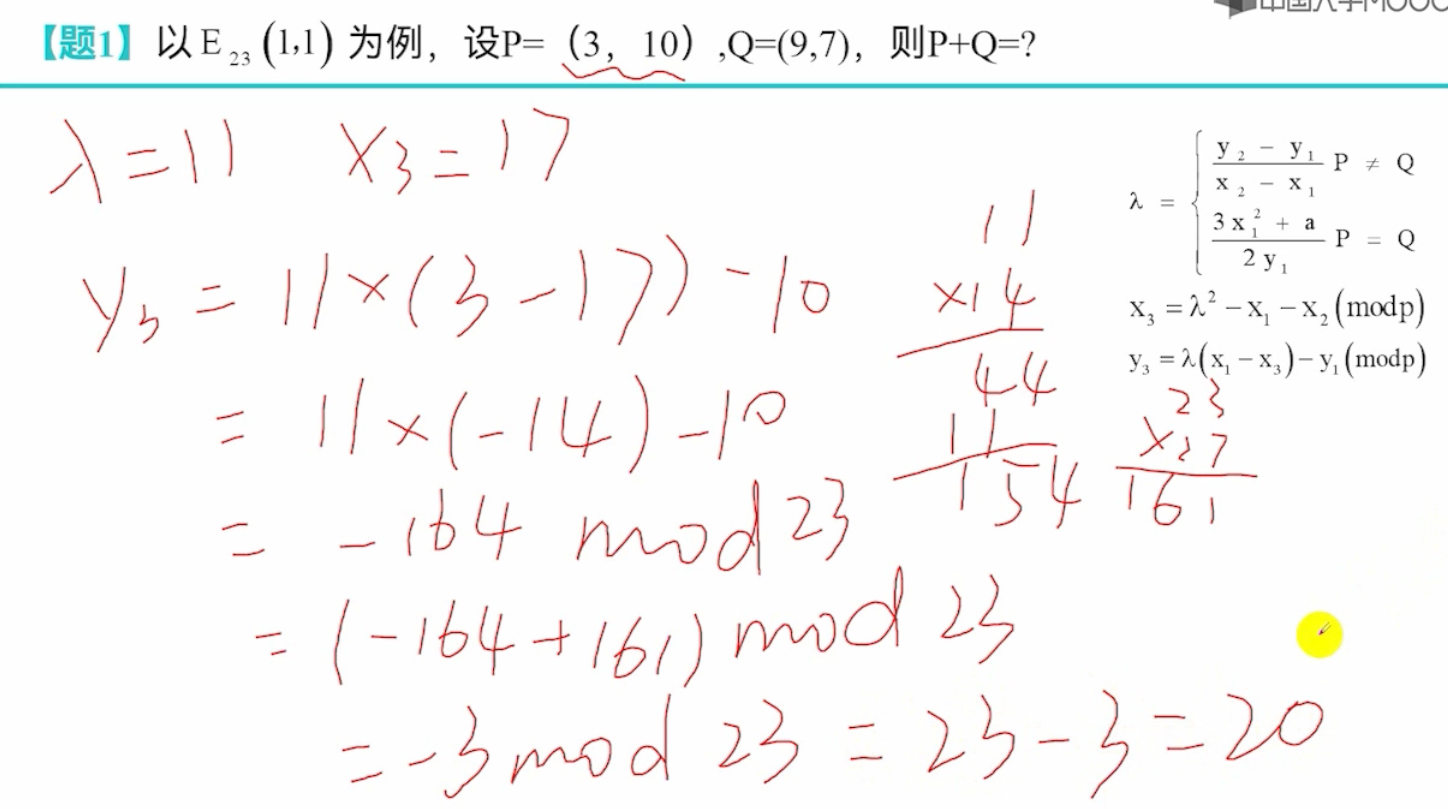 中国大学MOOC
【题1】以E₂₃(1,1)为例，设P=（3，10）,Q=(9,7)，则P+Q=?
λ=11 x₃=17
y₃=11×(3-17)-10
=11×(-14)-10
=-164 mod 23
=(-164+161) mod 23
=-3 mod 23=23-3=20
11
×14
44
11
154
23
×7
161
λ = { (y₂ − y₁)/(x₂ − x₁) P ≠ Q
(3x₁² + a)/(2y₁) P = Q
x₃ = λ² − x₁ − x₂(modp)
y₃ = λ(x₁ − x₃) − y₁(modp)